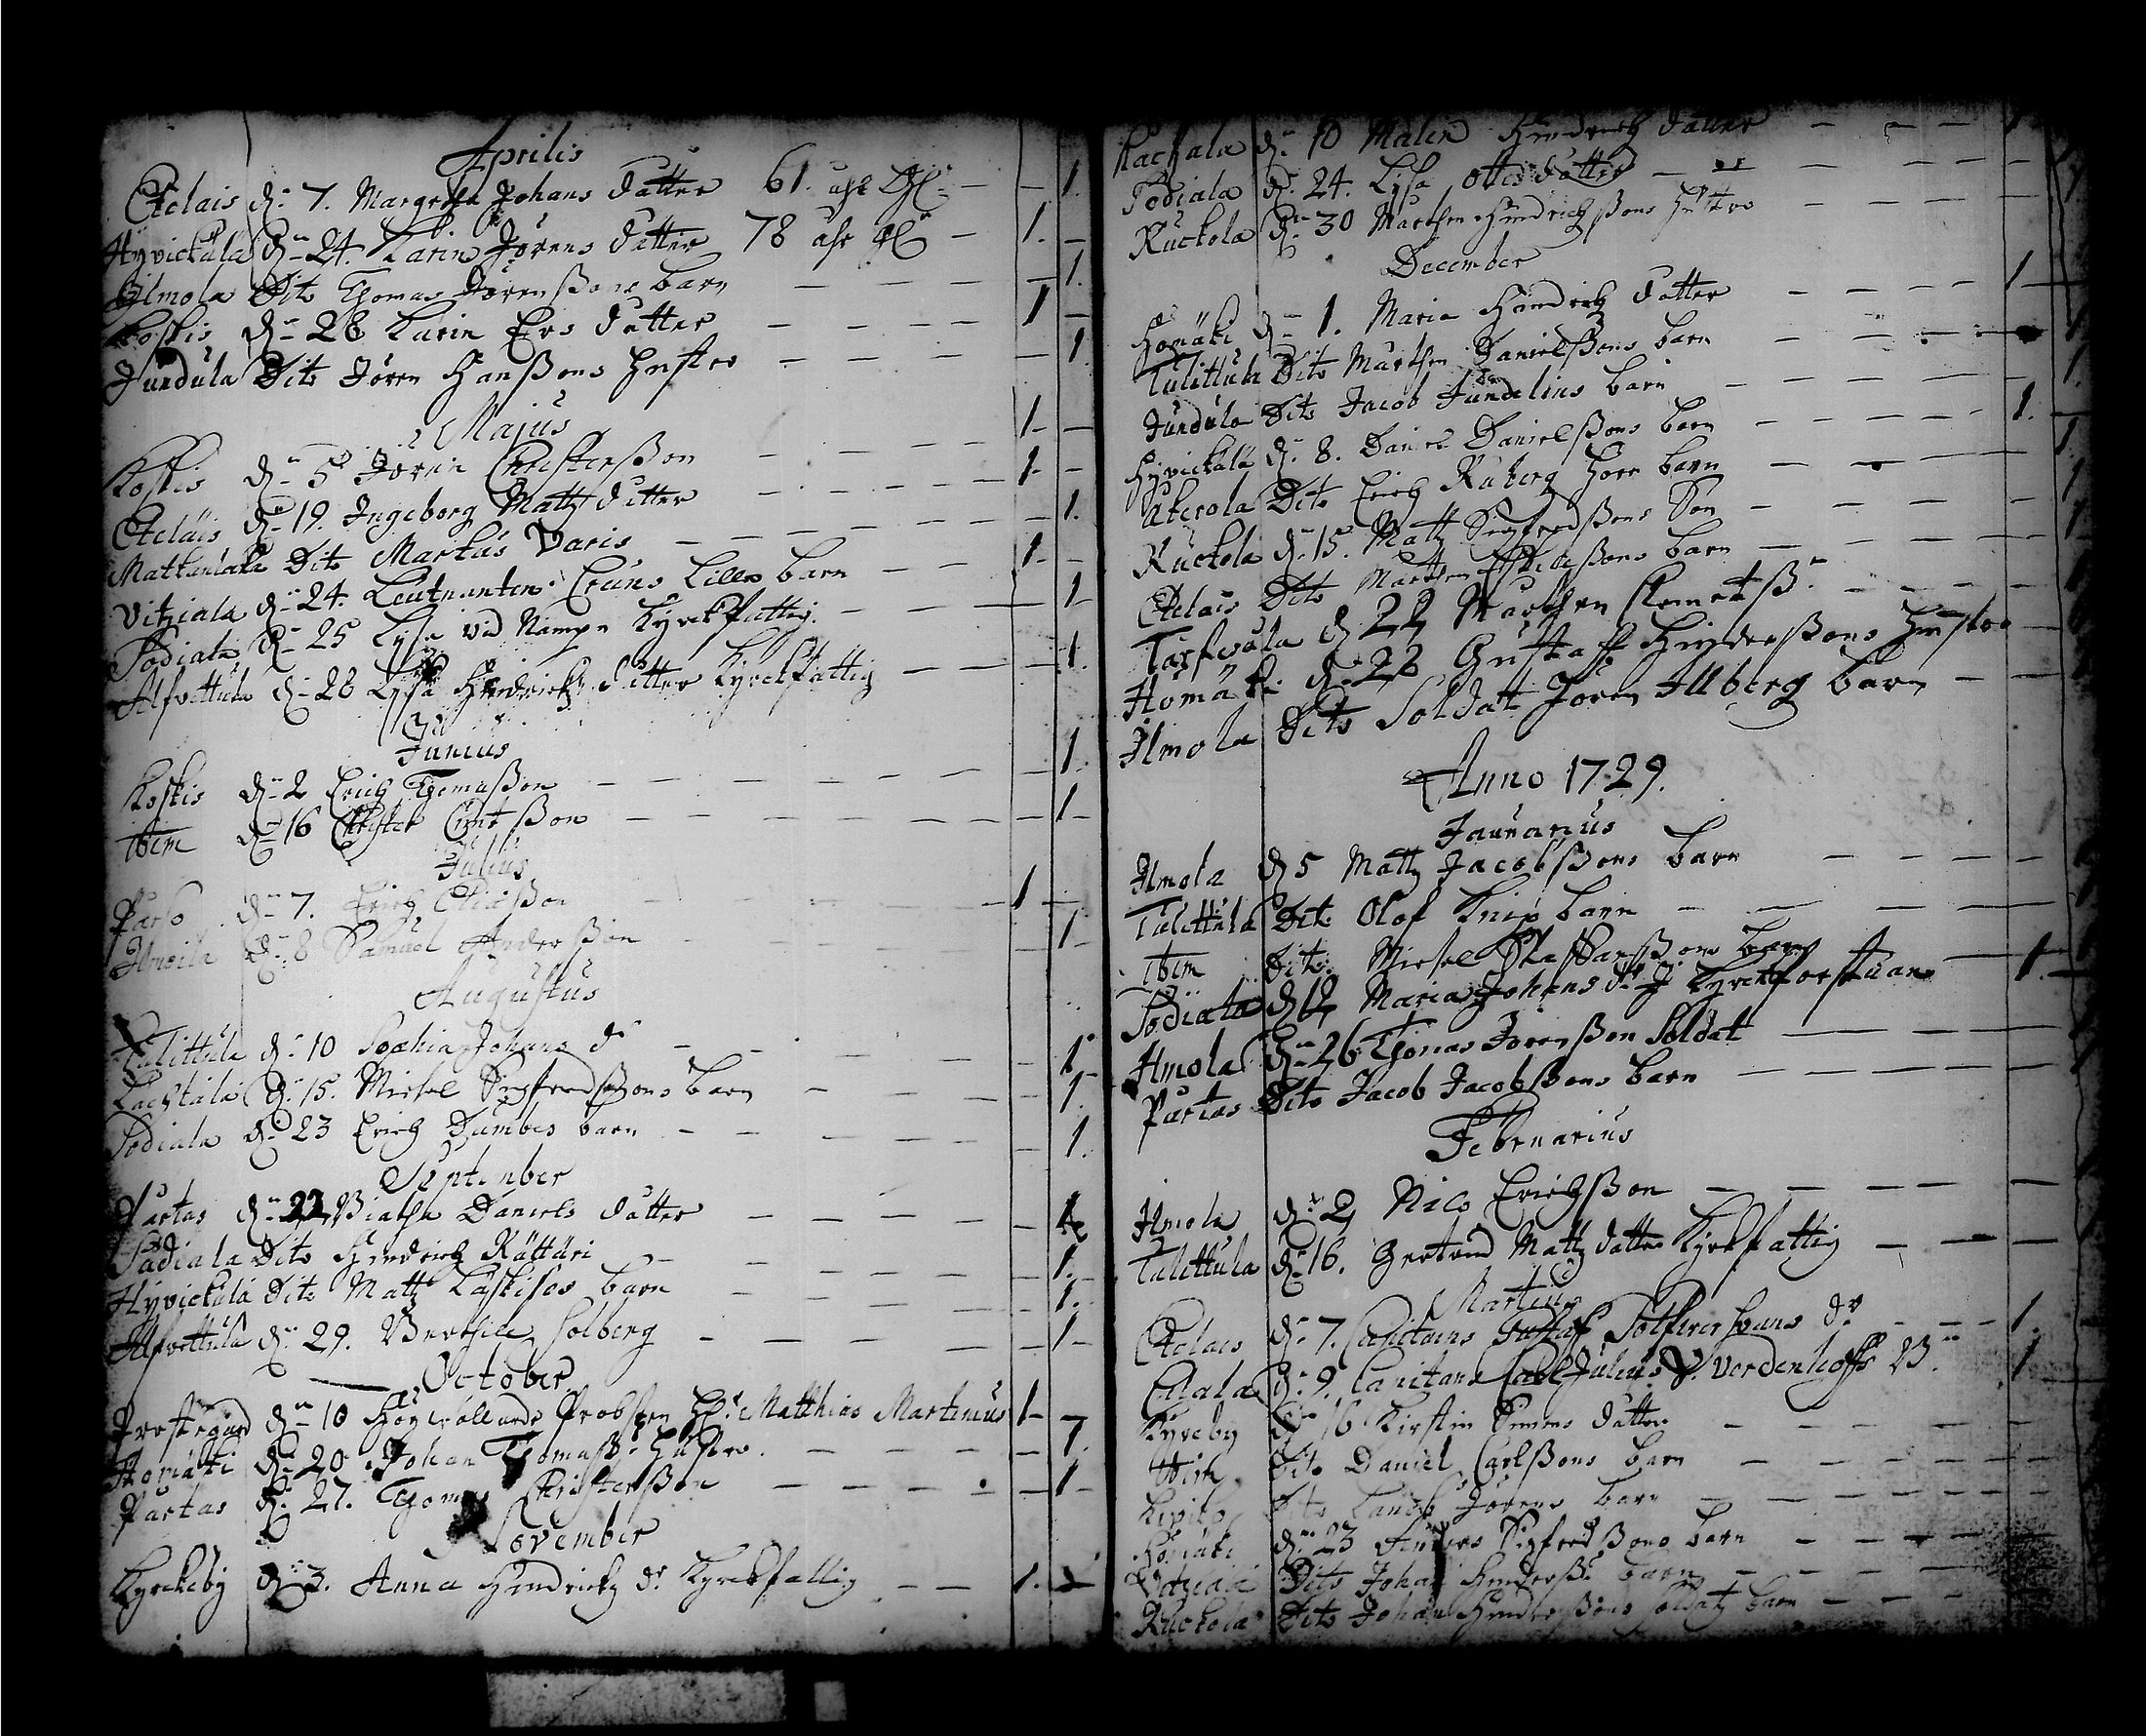 Aprilis
Etelais d. 7. Margeta Johans datter 61. åhr gl. 1.
Hyvickala d. 24. Karin Jörens datter 78 åhr gl 1.
Ilmola Dito Thomas Jörenßons barn 1.
Koskis d. 26 Karin Ers datter 1
Jundula Dito Jören Hanßons hustro 1.
Majus
Koskis d. 5 Jören Christerßon 1.
Etelais d. 19. Ingeborg Mattz datter 1.
Mattanlaka Dito Markus Varis 1.
Vitziala d. 24. Leutnanten Lillie barn 1.
Sodiala d. 25 Lisa vid Nampa Kyrckfattig. 1
Alfvettula d. 28 Lisa Hindrichz datter Kyrckfattig 1.
Junius
Koskis d. 2 Erich Thomaßon 1
Ibm d. 16 Christer ßon 1
Julius
d. 7. Erich ßon 1
Ilmoila d. 8 Samuel Anderßon 1
Augustus
Tulittula d. 10 Sophia Johans dr 1
Lachtala d. 15. Michel Sigfredßons barn 1.
Sodiala d. 23 Erich Dumbes barn 1.
September
Partas d. 22 Valborg Daniels datter 1
Sodiala Dito Hindrich Rättäri 1.
Hyvickala Dito Matz Laskises barn 1.
Alfvettula d. 29. Berthill Solberg 1
October
Prestegård d. 10 Högwällärde Probsten Hr. Matthias Martinius 1
Homäki d. 20 Johan Thomaß. hustro. 1.
Partas d. 27. Thomas Christerßon 1
November
Kyrckeby d. 3. Anna Hindrichz dr Kyrckfattig 1.
Rachala d. 10 Malin Hindrich datter 1
Sodiala d. 24. Lisa Ottes datter
Ruckola d. 30 Marthen Hindrichßons hustro
December
Homäki d. 1. Maria Hindrich datter 1
Tulittula Dito Marthen Danielßons barn 1
Jundula Dito Jacob Jundelins barn 1.
Hyvickala d. 8. Daniel Danielßons barn 1.
Uterola Dito Erich Ruberg hore barn 1.
Ruckola d. 15. Matz Sigfredßons Son 1
Etelais Dito Marthen ßons barn 1
d. 22 Marthen Clemetß.
Homäki d. 26 Gustaff Hinderßons hustro
Ilmola Dito Soldat Jören Illberg barn
Anno 1729.
Januarius
Ilmola d 5 Matz Jacobßons barn
Tulittula Dito Olof Knip barn
Ibm Dito Michel Staffanßons barn
Sodiala d 12 Maria Johans dr J Kyrckforstuan 1.
Ilmola d. 26 Thomas Jörenßon Soldat
Partas Dito Jacob Jacobßons barn
Februarius
Ilmola d. 2 Nils Erichßon
Tulittula d. 16. Gertrud Mattz datter Kyrckfattig
Martius
Etelais d. 7. Capitains Gustaf dr 1.
d. 9. Capitans Carl Julius v. Verdenhoffs B. 1
Kyreby d. 16 Kirstin Simons datter
Dito Daniel Carlßons barn
Dito Jörens barn
Homäki d. 23 Anders Sigfredßons barn
Vitziala Dito Johan Hinderß. barn
Ruckola Dito Johan Hinderßons Soldatz barn